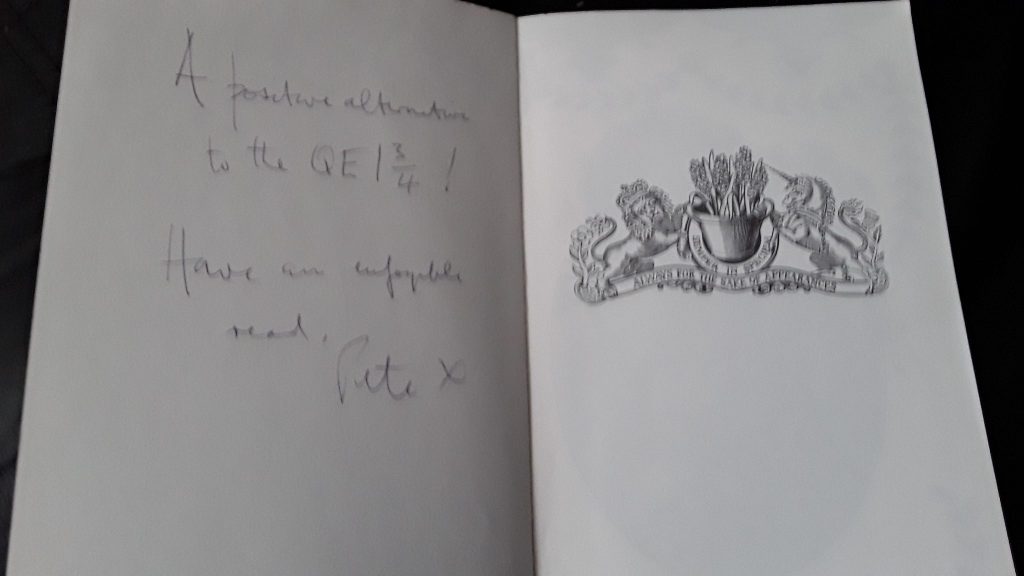 A positive alternative
to the QE1 3/4!
Have an enjoyable
read.
Pete X
IN
FOR THE SAKE OF APPEARANCES